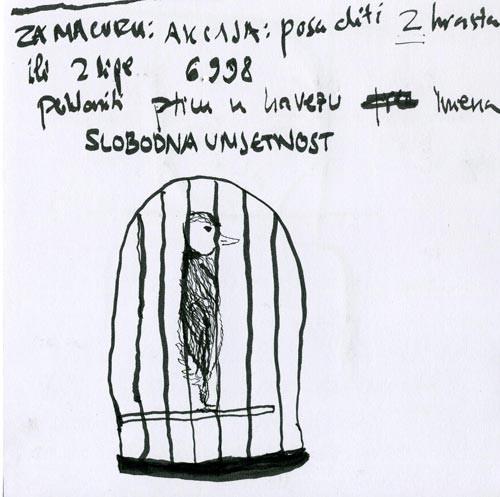 ZA MACURU: AKCIJA: posaditi 2 hrasta
ili 2 lipe 6.998
pokloniti pticu u kavezu imena
SLOBODNA UMJETNOST